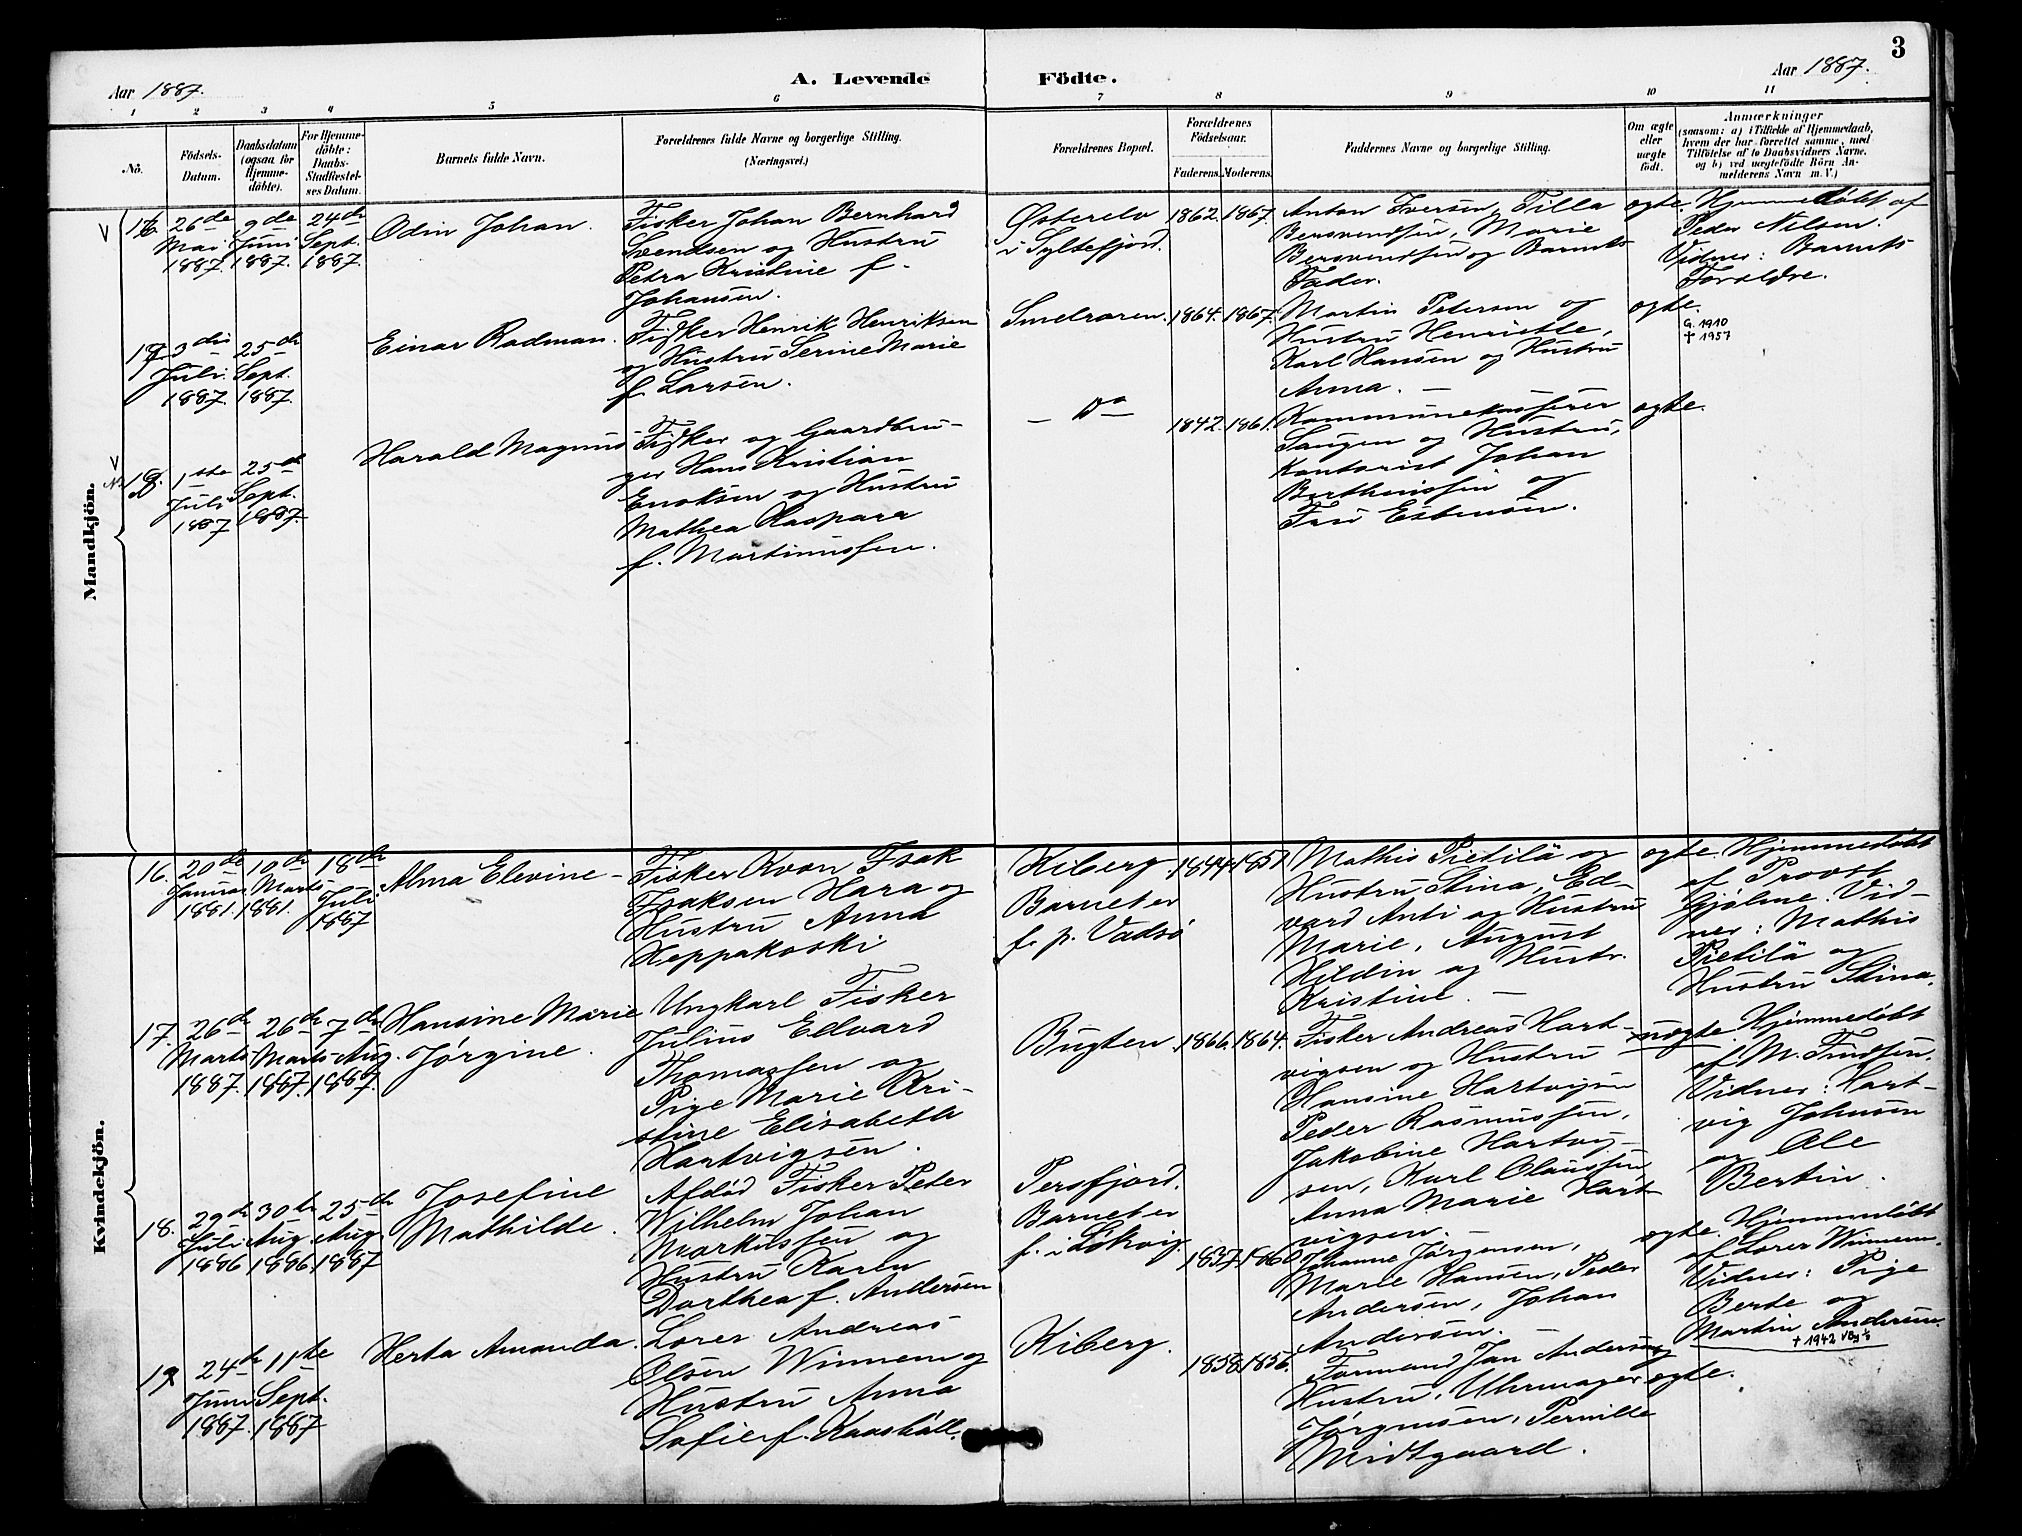 3
Aar 1887.
A. Levende Födte.
Aar 1887.
1 2 3 4 5 6 7 8 9 10 11
No.
Födsels-
Datum.
Daabsdatum
(ogsaa for
Hjemme-
döbte).
For Hjemme-
döbte:
Daabs-
Stadfæstel-
ses Datum.
Barnets fulde Navn.
Forældrenes fulde Navne og borgerlige Stilling.
(Næringsvei.)
Forældrenes Bopæl.
Forældrenes
Födselsaar.
Faderens. Moderens.
Faddernes Navne og borgerlige Stilling.
Om ægte
eller
uægte
födt.
Anmærkninger
(saasom: a) i Tilfælde af Hjemmedaab,
hvem der har forrettet samme, med
Tilföielse af to Daabsvidners Navne,
og b) ved uægtefödte Börn An-
melderens Navn m. V.)
Mandkjön.
16.
26de
Mai
1887.
9de
Juni
1887.
24de
Sept.
1887.
Odin Johan.
Fisker Johan Bernhard
Svendsen og Hustru
Petra Kristine f.
Johansen.
Østerelv
i Syltefjord.
1862. 1867.
Anton Iversen, Tilla
Bersvendsen, Marie
Bersvendsen og Barnets
Fader.
ægte.
Hjemmedöbt af
Peder Nilsen.
Vidner: Barnets
Forældre.
17.
3die
Juli.
1887.
25de
Sept.
1887.
Einar Radman.
Fisker Henrik Henriksen
og Hustru Serine Marie
f. Larsen.
Smelroren.
1864. 1867.
Martin Petersen og
Hustru Henriette,
Karl Hansen og Hustru
Anna. —
ægte.
G. 1910
† 1957
18.
1ste
Juli
1887
25de
Sept.
1887.
Harald Magnus
Fisker og Gaardbru-
ger Hans Kristian
Enoksen og Hustru
Mathea Kaspara
f. Martinussen.
— Do —
1842. 1861.
Kommunekasserer
Saugen og Hustru,
Kontorist Johan
Berthinssen og
Fru Esbensen.
ægte.
Kvindekjön.
16.
20de
Januar
1881.
10de
Marts
1881.
18de
Juli
1887
Alma Elevine —
Fisker Kvæn Isak
Isaksen Hara og
Hustru Anna
Keppakoski
Kiberg.
Barnet er
f. p. Vadsö
1844. 1851
Mathis Pietilä og
Hustru Stina, Ed-
vard Anti og Hustru
Marie, August
Hildin og Hustr.
Kristine. —
ægte.
Hjemmedöbt
af Provst
Gjölme. Vid-
ner: Mathis
Pietilä og
Hustru Stina.
17.
26de
Marts
1887.
26de
Marts
1887.
7de
Aug.
1887.
Hansine Marie
Jörgine.
Ungkarl Fisker
Julius Edvard
Thomassen og
Pige Marie Kri-
stine Elisabeth
Hartvigsen.
Bugten.
1866. 1864.
Fisker Andreas Hart-
vigsen og Hustru
Hansine Hartvigsen
Peder Rasmussen,
Jakobine Hartvig-
sen, Karl Olaussen
Anna Marie Hart-
vigsen.
uægte.
Hjemmedöbt
af M. Trudsen.
Vidner: Hart-
vig Johnsen
og Ole
Bertin.
18.
29de
Juli
1886
30te
Aug.
1886
25de
Aug.
1887
Josefine
Mathilde.
Afdöd Fisker Peter
Wilhelm Johan
Markussen og
Hustru Karen
Dorthea f. Andersen
Persfjord.
Barnet er
f. i Lökvig.
1837. 1860
Johanne Jörgensen,
Marie Hansen, Peder
Andersen, Johan
Andersen.
ægte.
Hjemmedöbt
af Lærer Winnem.
Vidner: Pige
Berte og
Martin Andersen.
19
24de
Juni
1887.
11te
Sept.
1887
Herta Amanda.
Lærer Andreas
Olsen Winnem og
Hustru Anna
Sofie f. Kaashöll.
Kiberg.
1858. 1856.
Formand Jan Andersen og
Hustru, Uhrmager
Jörgensen, Pernille
Midtgaard.
ægte.
† 1942